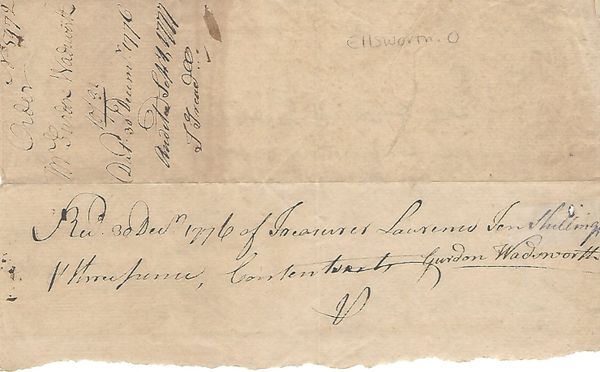 Order
Mr Gurdon Wadsworth
10/3
Dat. 30 Decemr. 1776
Audited Sept 8 1777
Ellsworth. O
Recd. 30 Decr. 1776 of Treasurer Lawrence Ten Shillings
& three pence, Contents Gurdon Wadsworth